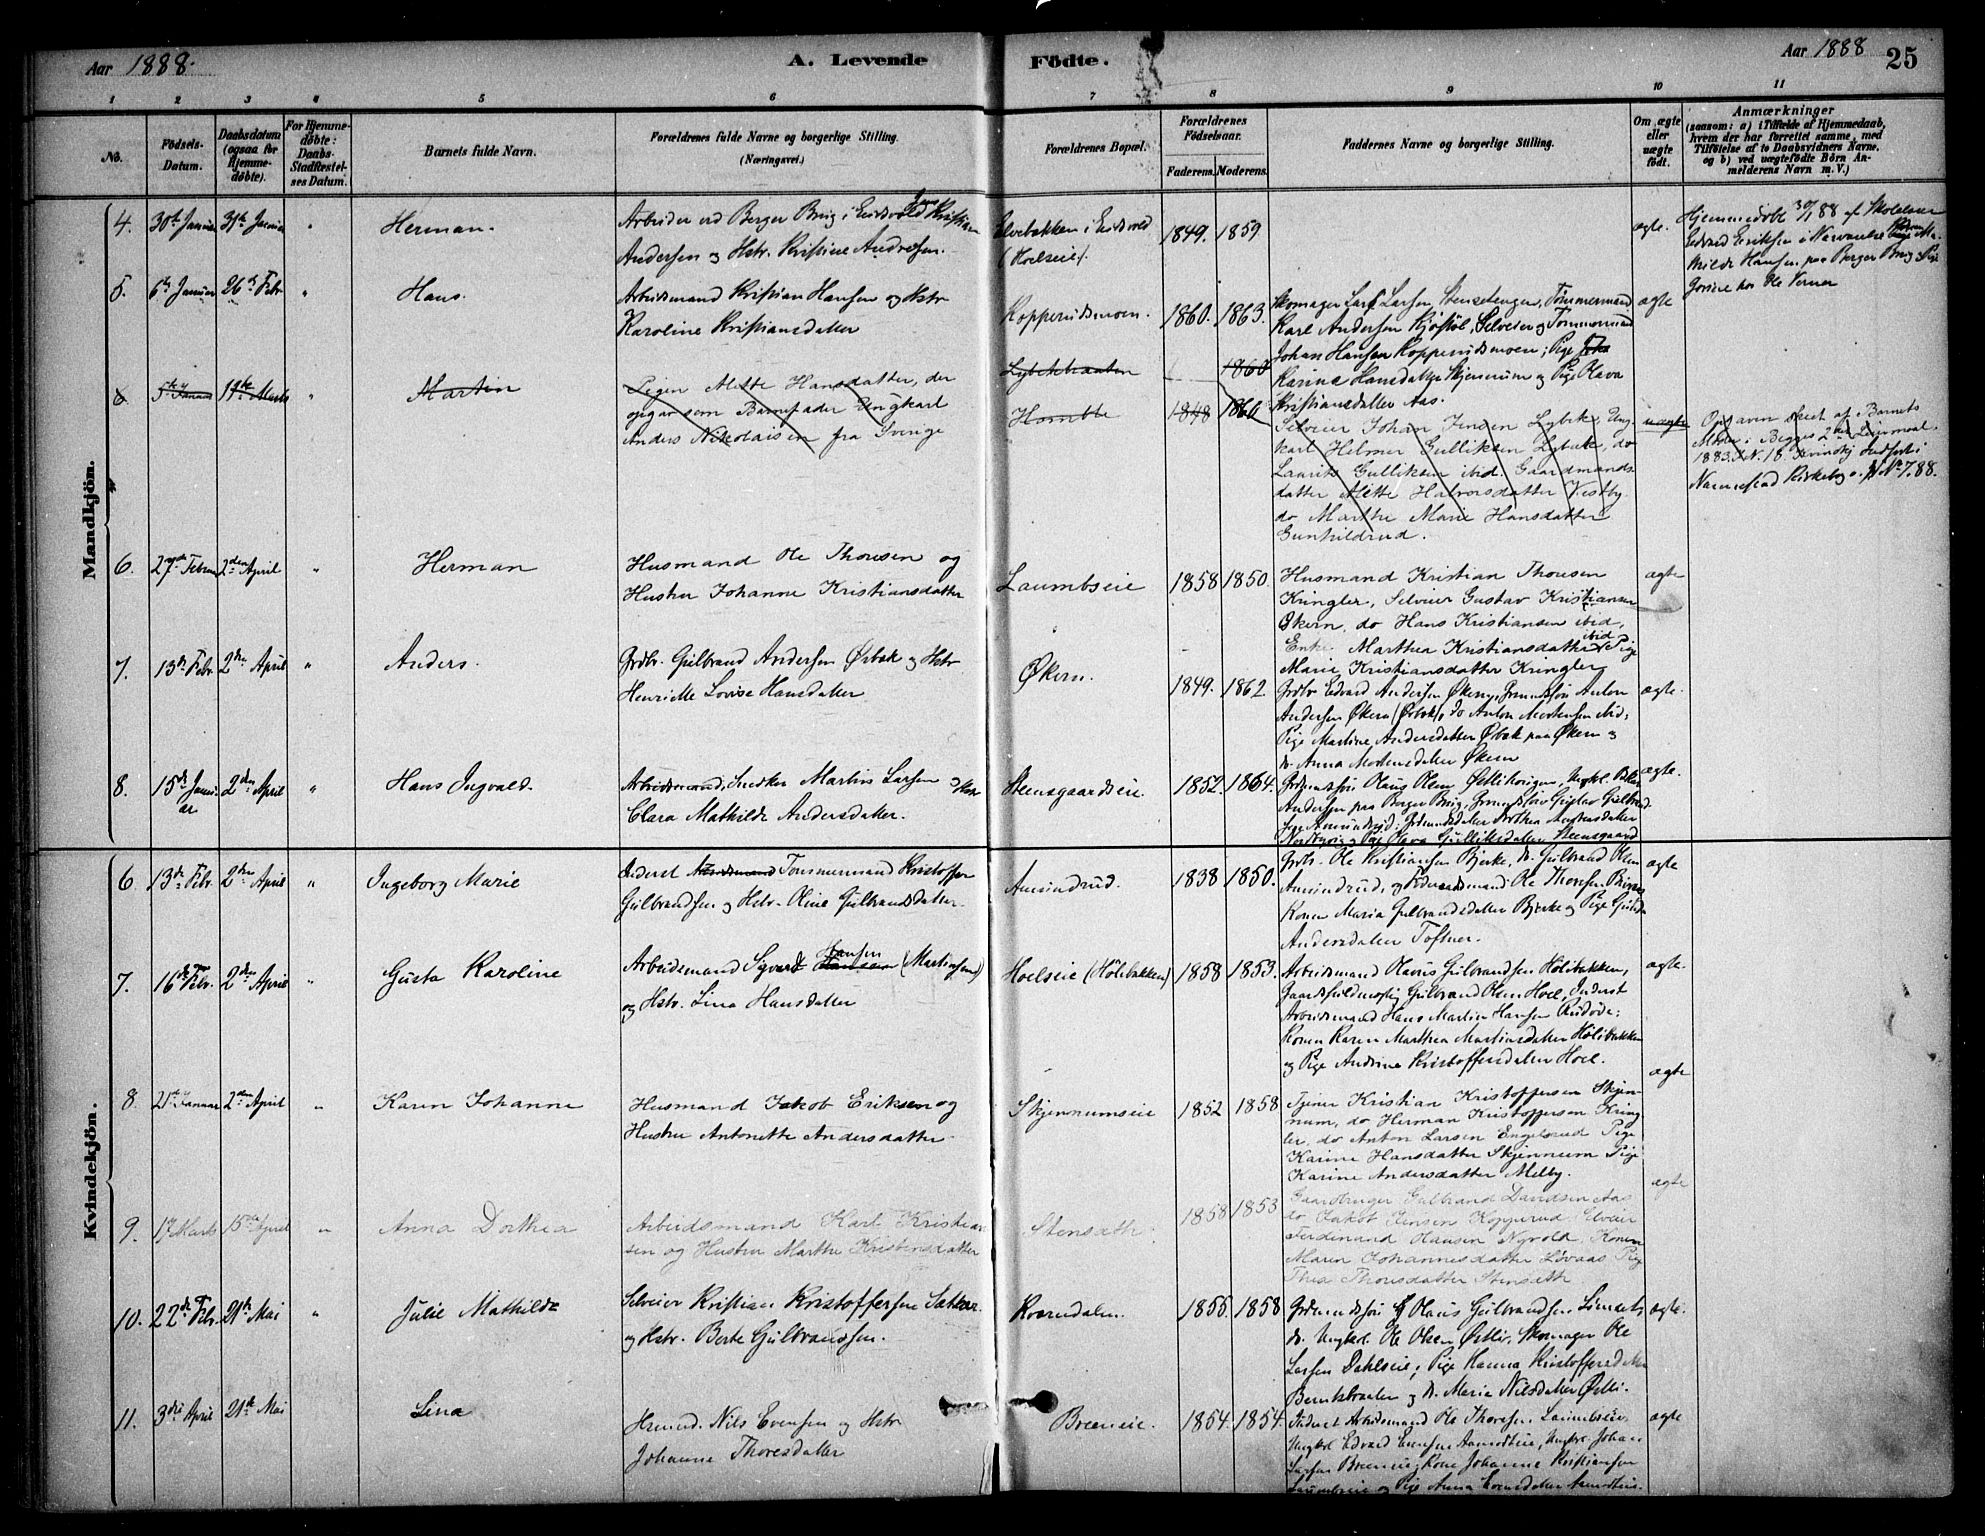 Aar 1888.
A. Levende Fødte.
Aar 1888
25
1 2 3 4 5 6 7 8 9 10 11
No.
Fødsels-Datum.
Daabsdatum (ogsaa for Hjemme-døbte).
For Hjemme-døbte: Daabs-Stadfæstel-ses Datum.
Barnets fulde Navn.
Forældrenes fulde Navne og borgerlige Stilling.
(Næringsvei.)
Forældrenes Bopæl.
Forældrenes Fødselsaar.
Faderens. Moderens.
Faddernes Navne og borgerlige Stilling.
Om ægte eller uægte født.
Anmærkninger
(saasom: a) i Tilfælde af Hjemmedaab,
hvem der har forrettet samme, med
Tilføielse af to Daabsvidners Navne,
og b) ved uægtefødte Børn An-
melderens Navn m. V.)
Mandkjøn.
4. 30te Januar 31te Januar " Herman.
Arbeider ved Berger Brug i Eidsvold Jens Kristian
Andersen og Hstr. Kristine Andersen.
Elvebakken i Eidsvold
(Hoelseie).
1849. 1859
ægte.
Hjemmedøbt 30/1 88 af Skolelærer
Edvard Eriksen i
Hansen paa Berger Brug, Pige
hos Ole Verner
5. 6te Januar 26de Febr " Hans.
Arbeidsmand Kristian Hansen og Hstr
Karoline Kristiansdatter
Kopperudsmoen. 1860. 1863.
Skomager Lars Larsen Stensetengen, Tømmermand
Karl Andersen Kjøstol, Selveier og Tømmermand
Johan Hansen Kopperudsmoen; Pige
Karine Hansdatter Skjennum og Pige Olava
Kristiansdatter Aas.
ægte
6 5te Januar 19de Marts " Martin
Pigen Alette Hansdatter, der
opgav som Barnefader Ungkarl
Anders Nikolaisen fra Sverige
Lybekbraaten 1860
Homble 1848 1860
Selveier Johan Jensen Lybek, Ung-
karl Helmer Gulliksen Lybek, do
Laurits Gulliksen ibid. Gaardmands-
datter Alette Halvorsdatter Vestby
do Marthe Marie Hansdatter
Gunhildrud.
uægte
Opgaven skeet af Barnets
Moder; Begges 2det Leiermaal.
1883. N. 18. Kvindkj. Indført i
Nannestad Kirkebog N. 7. 88.
6. 27de Februar 2den April " Herman
Husmand Ole Thoresen og
Hustru Johanne Kristiansdatter
Laumbseie 1858 1850.
Husmand Kristian Thoresen
Kringler, Selveier Gustav Kristiansen
Økern, do Hans Kristiansen ibid,
Enke Marthea Kristiansdatter ibid Pige
Marie Kristiansdatter Kringler
ægte
7. 13de Febr. 2den April " Anders.
Grdbr. Gulbrand Andersen Ørbæk og Hstr
Henriette Lovise Hansdatter
Økern. 1849. 1862.
Grdbr Edvard Andersen Økern, Grmdssøn Anton
Andersen Økern (Ørbæk), do Anton Mortensen ibid;
Pige Martine Andersdatter Ørbæk paa Økern og
do Anna Mortensdatter Økern
ægte.
8. 15de Janu-ar 2den April " Hans Ingvald.
Arbeidsmand, Snedker Martin Larsen og Hstr
Clara Mathilde Andersdatter.
Steensgaardseie. 1852. 1864.
Grdmdssøn Olaus Olsen Østlihougen, Ungkl.
Andersen paa Berger Brug, Grmdssøn Gustav Gulbrand-
sen Amundrud; Grdmdsdatter Dorthea Andersdatter
og Pige Olava Gulliksdatter Steensgaard
ægte.
Kvindekjøn.
6 13de Febr. 2den April " Ingeborg Marie
Inderst Arbeidsmand Tømmermand Kristoffer
Gulbrandsen og Hstr. Oline Gulbrandsdatter.
Amundrud. 1838 1850.
Grdbr. Ole Kristiansen Bjerke, do Gulbrand Olsen
Amundrud, og Føderaadsmand Ole Thoresen
Konen Maria Gulbrandsdatter Bjerke og Pige
Andersdatter Toftner.
ægte
7. 16de Febr. 2den April " Gusta Karoline
Arbeidsmand Sigvard Hansen (Martinsen)
og Hstr. Lina Hansdatter
Hoelseie (Hølibakken) 1858 1853.
Arbeidsmand Olavus Gulbrandsen Hølibakken,
Gaardsfuldmægtig Gulbrand Olsen Hoel, Inderst
Arbeidsmand Hans Martin Hansen
Konen Karen Marthea Martinsdatter Hølibakken
og Pige Andrine Kristoffersdatter Hoel.
ægte.
8. 21de Januar 2den April " Karen Johanne
Husmand Jakob Eriksen og
Hustru Antonette Andersdatter
Skjennumseie 1852 1858
Tjener Kristian Kristoffersen Skjen-
num, do Herman Kristoffersen Kring-
ler, do Anton Larsen Engelsrud Pige
Karine Hansdatter Skjennum Pige
Karine Andersdatter Melby.
ægte
9. 17 Marts 15de April " Anna Dorthea
Arbeidsmand Karl Kristian-
sen og Hustru Marthe Kristensdatter
Stensæth. 1858 1853
Gaardbruger Gulbrand Davidsen Aas
do Jakob Jensen Kopperud, Selveier
Ferdinand Hansen Nyvold, Konen
Maren Johannesdatter Løvaas Pige
Thea Thoresdatter Stensæth.
ægte
10. 22de Febr. 21de Mai " Julie Mathilde
Selveier Kristian Kristoffersen
og Hstr. Berte Gulbrandsen.
Rosendalen. 1855. 1858
Grdmandssøn Olaus Gulbrandsen
do Ungkl. Ole Olsen Østli, Skomager Ole
Larsen Dahlseie; Pige Hanna Kristoffersdatter
Berntsbraaten og do Maria Nilsdatter Østli.
ægte.
11. 3die April 21de Mai Lina
Husmd. Nils Evensen og Hstr
Johanne Thoresdatter
Breeneie. 1854. 1854.
Inderst Arbeidsmand Ole Thoresen Laumbseie,
Ungkl Edvard Evensen Aamodteie, Ungkl. Johan
Larsen Breeneie, Kone Johanne Kristiansen
Laumbseie og Pige Anna Evensdatter Aamodteie.
ægte